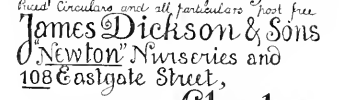 Priced Circulars and all particulars post free
James Dickson & Sons
"Newton" Nurseries and
108 Eastgate Street,